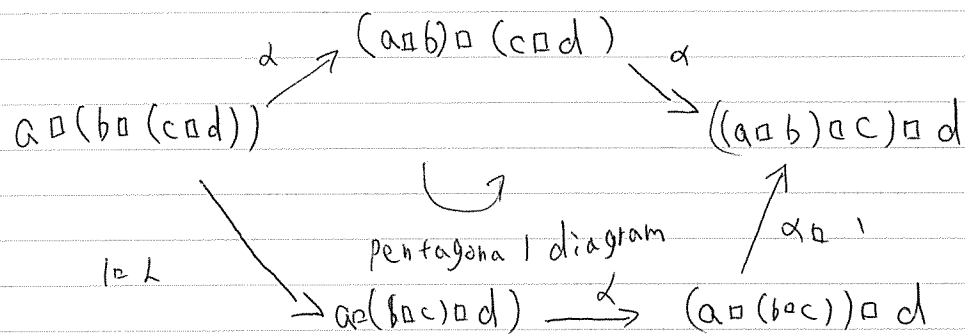 (a□b)□(c□d)
α α
a□(b□(c□d)) ((a□b)□c)□d
pentagonal diagram
1□α α□1
a□(b□c)□d) α (a□(b□c))□d